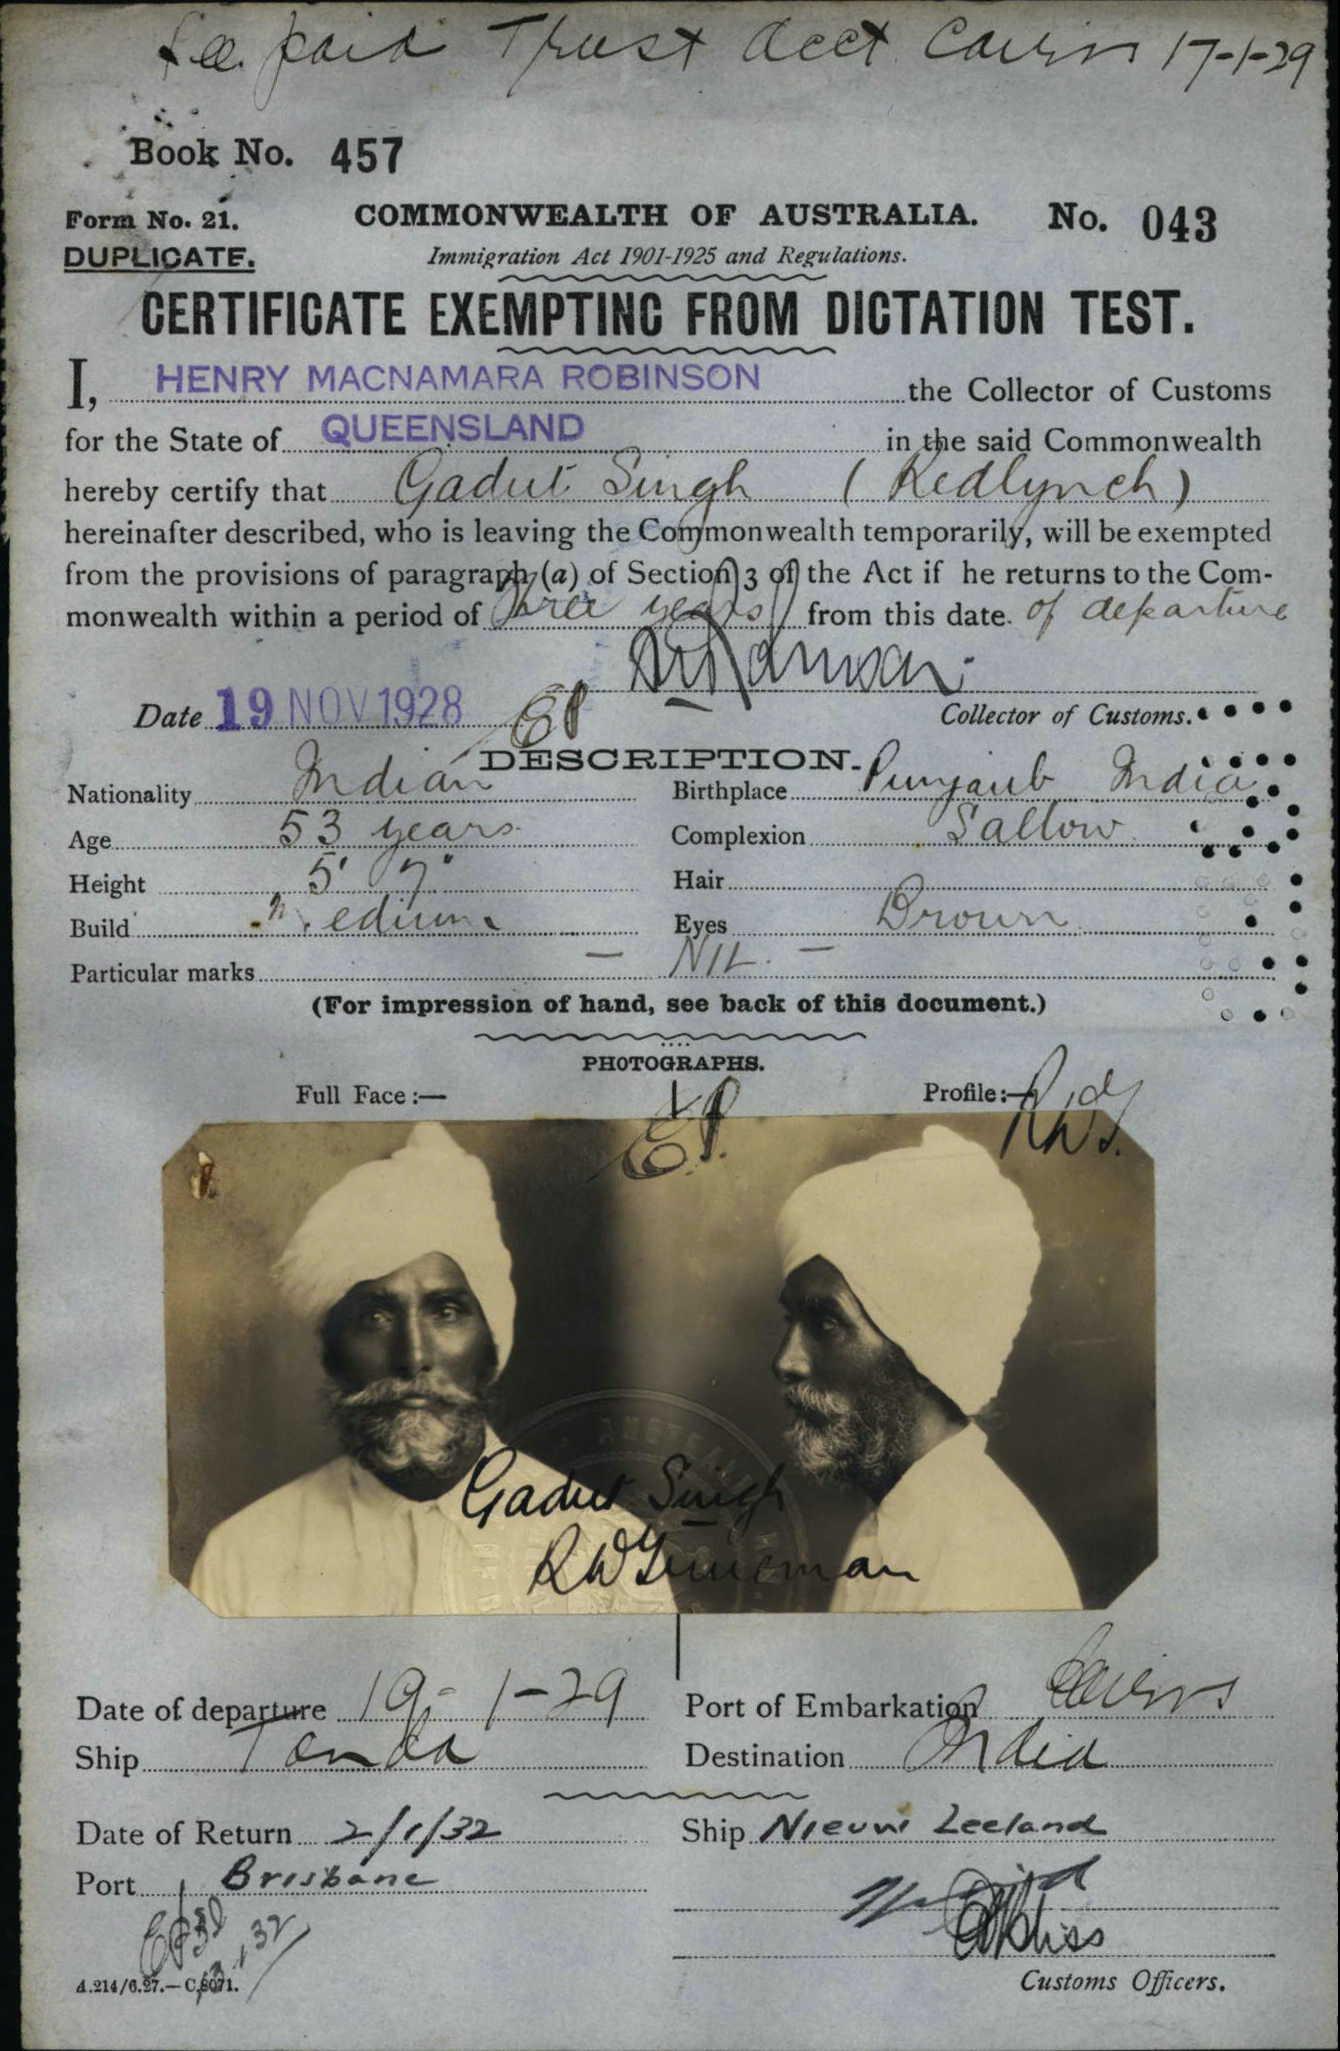 Fee paid Trust Acct Cairns 17-1-29
Book No. 457
Form No. 21.
COMMONWEALTH OF AUSTRALIA.
No. 043
DUPLICATE.
Immigration Act 1901-1925 and Regulations.
CERTIFICATE EXEMPTING FROM DICTATION TEST.
I, HENRY MACNAMARA ROBINSON the Collector of Customs
for the State of QUEENSLAND in the said Commonwealth
hereby certify that Gadut Singh (Redlynch)
hereinafter described, who is leaving the Commonwealth temporarily, will be exempted
from the provisions of paragraph (a) of Section 3 of the Act if he returns to the Com-
monwealth within a period of three years from this date. of departure
Date 19 NOV 1928
Collector of Customs.
DESCRIPTION.
Nationality Indian
Birthplace Punjaub India
Age 53 years
Complexion Sallow
Height 5' 7"
Hair
Build Medium
Eyes Brown
Particular marks — NIL. —
(For impression of hand, see back of this document.)
PHOTOGRAPHS.
Full Face:—
Profile:—
EP.
RWG.
Gadut Singh
Date of departure 19-1-29
Port of Embarkation Cairns
Ship Tanda
Destination India
Date of Return 2/1/32
Ship Nieuw Zeeland
Port Brisbane
Customs Officers.
A.214/6.27.—C.8071.